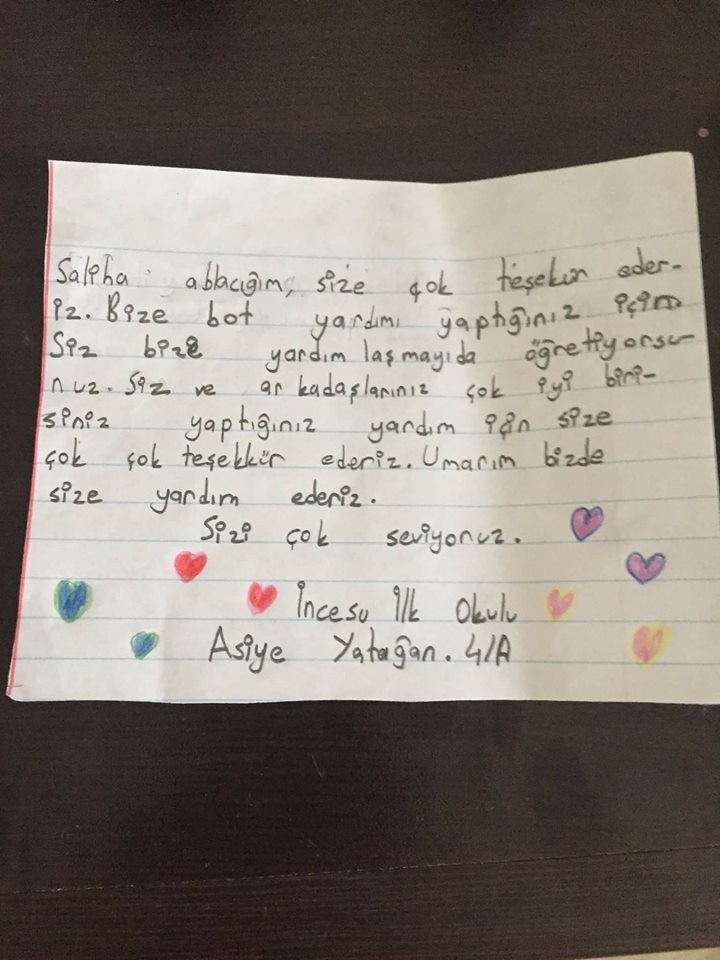 Saliha ablacığım, size çok teşekür eder-
iz. Bize bot yardımı yaptığınız için
Siz bize yardım laşmayıda öğretiyorsu-
nuz. Siz ve ar kadaşlarınız çok iyi biri-
siniz yaptığınız yardım için size
çok çok teşekkür ederiz. Umarım bizde
size yardım ederiz.
Sizi çok seviyoruz.
İncesu İlk Okulu
Asiye Yatağan. 4/A